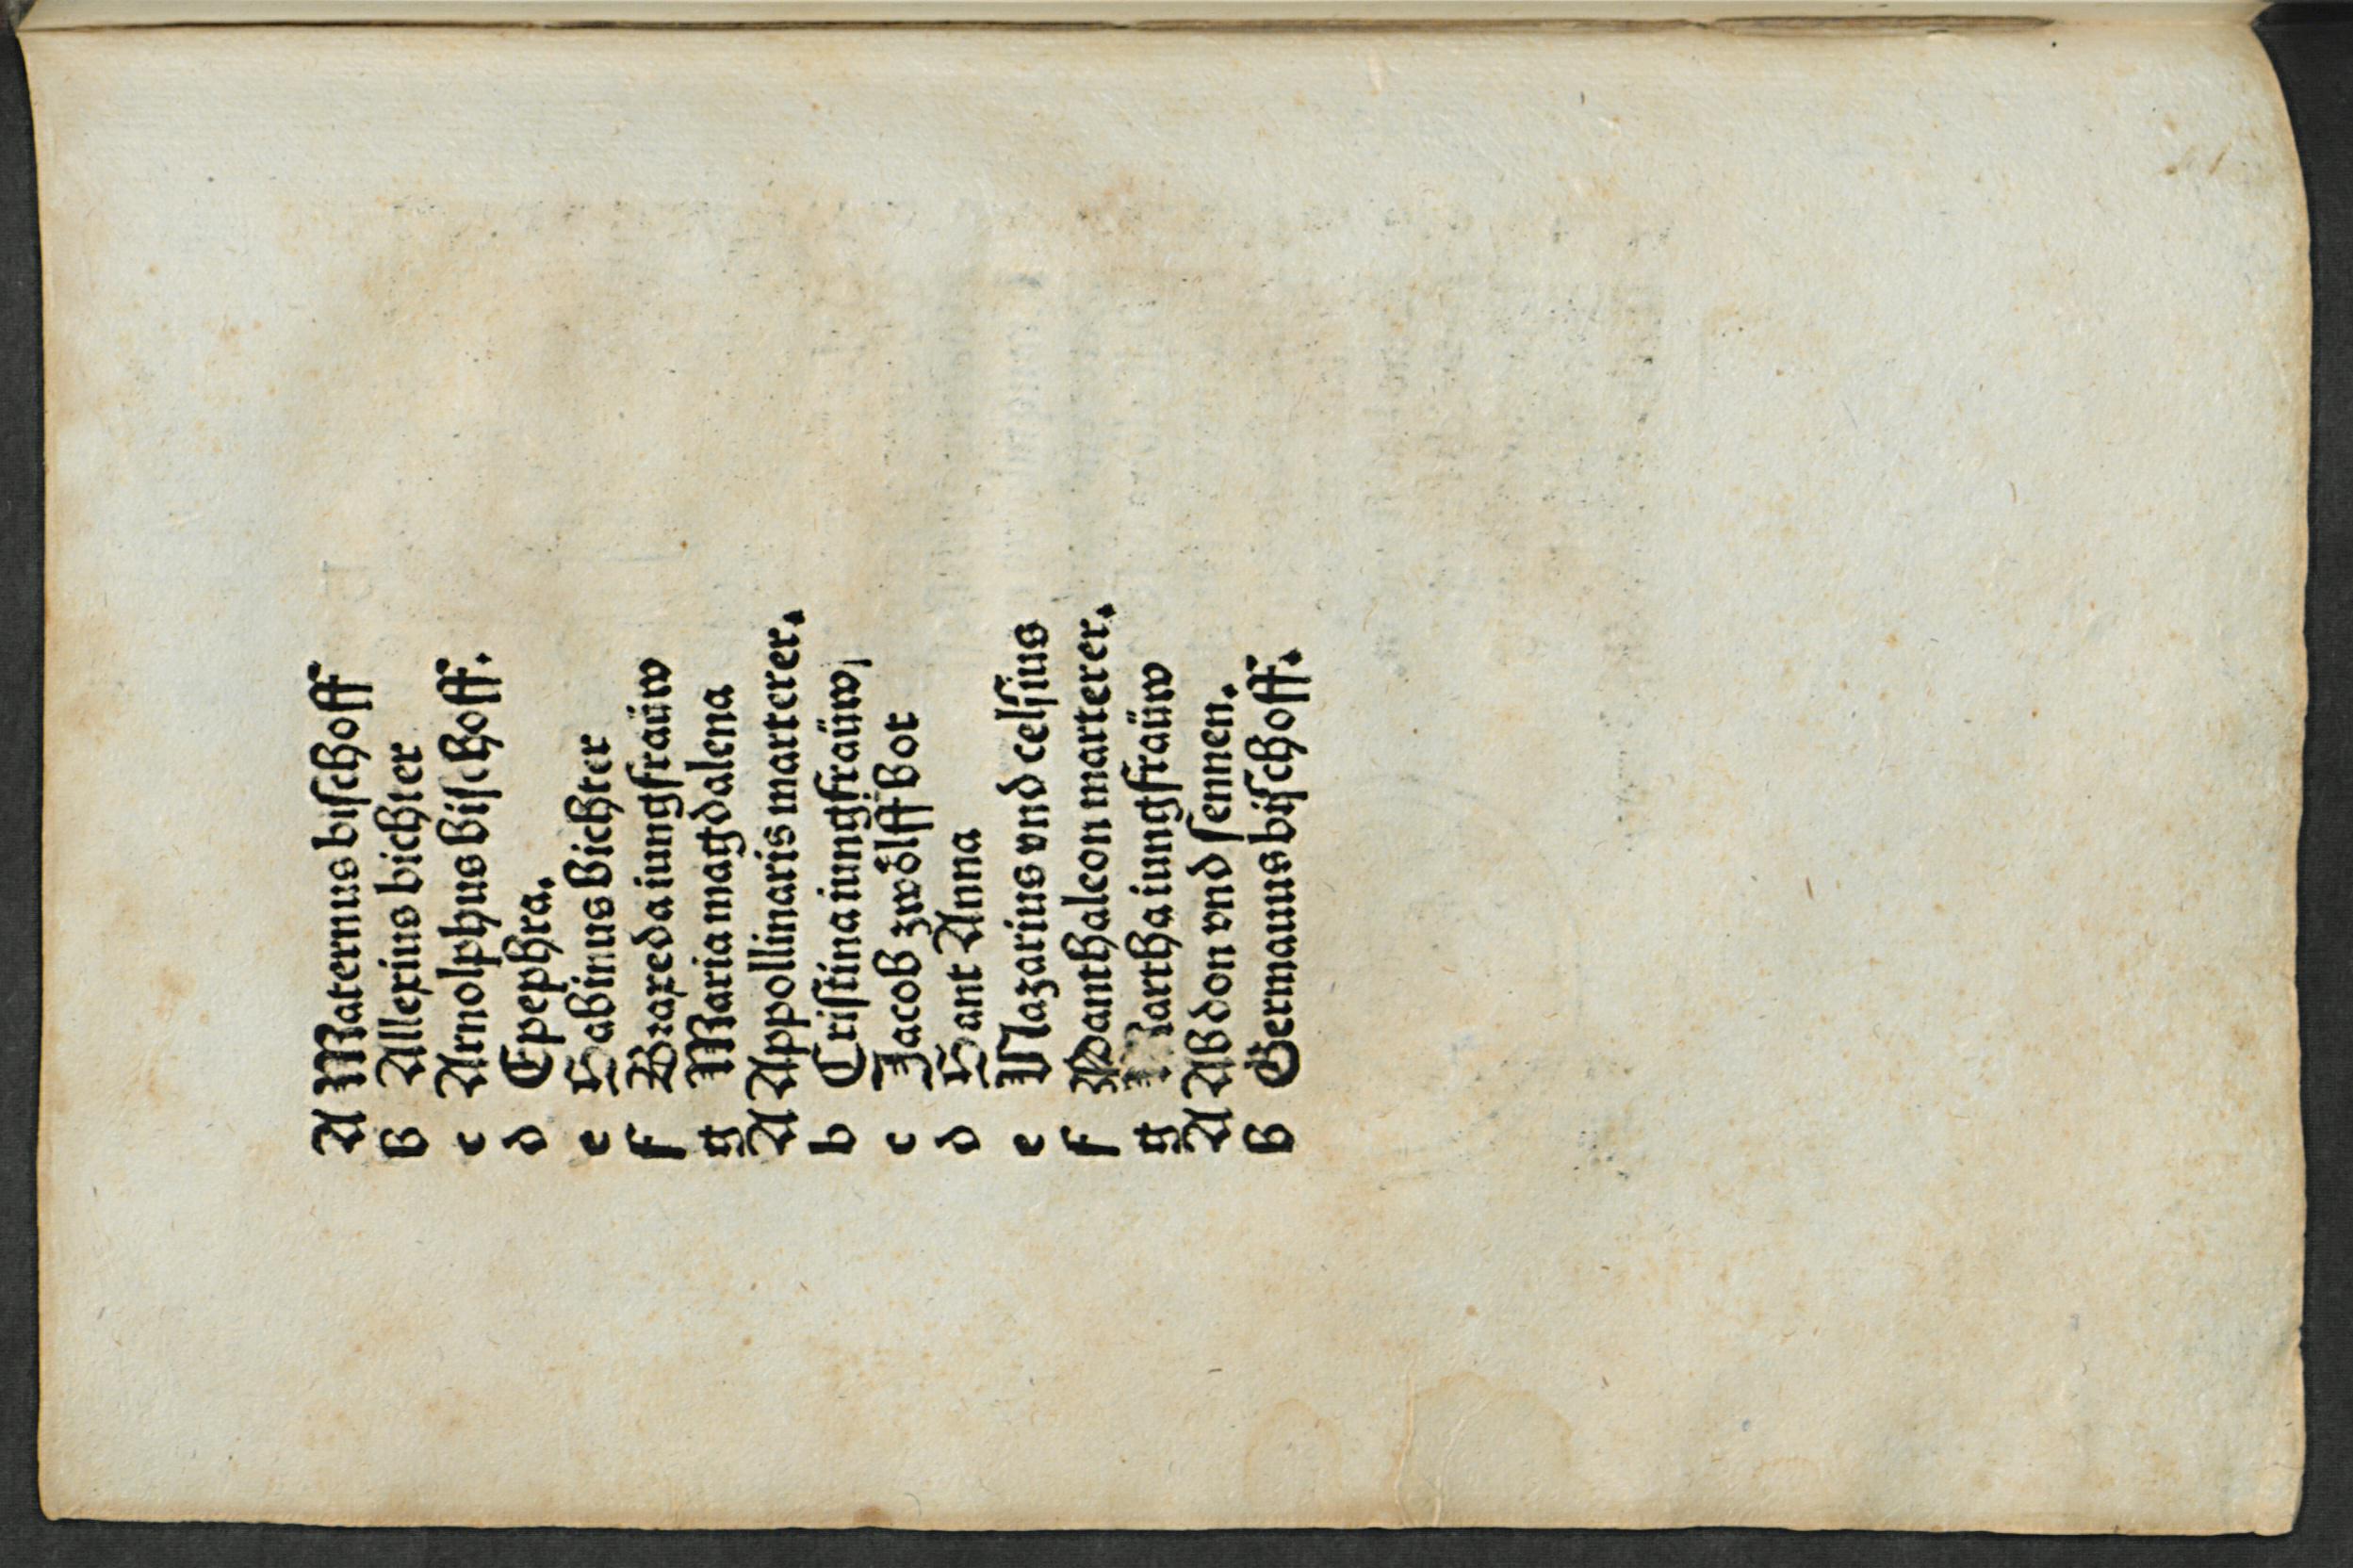 A Maternus biſchoff
b Allexius bichter
c Arnolphus biſchoff.
d Epephra.
e Sabinus bichter
f Braxeda iungfraüw
g Maria magdalena
A Appollinaris marterer.
b Criſtina iungfraüw,
c Jacob zwoͤlff bot
d Sant Anna
e Nazarius vnd celſius
f Panthaleon marterer.
g Martha iungfraüw
A Abdon vnd ſennen.
b Germanus biſchoff.